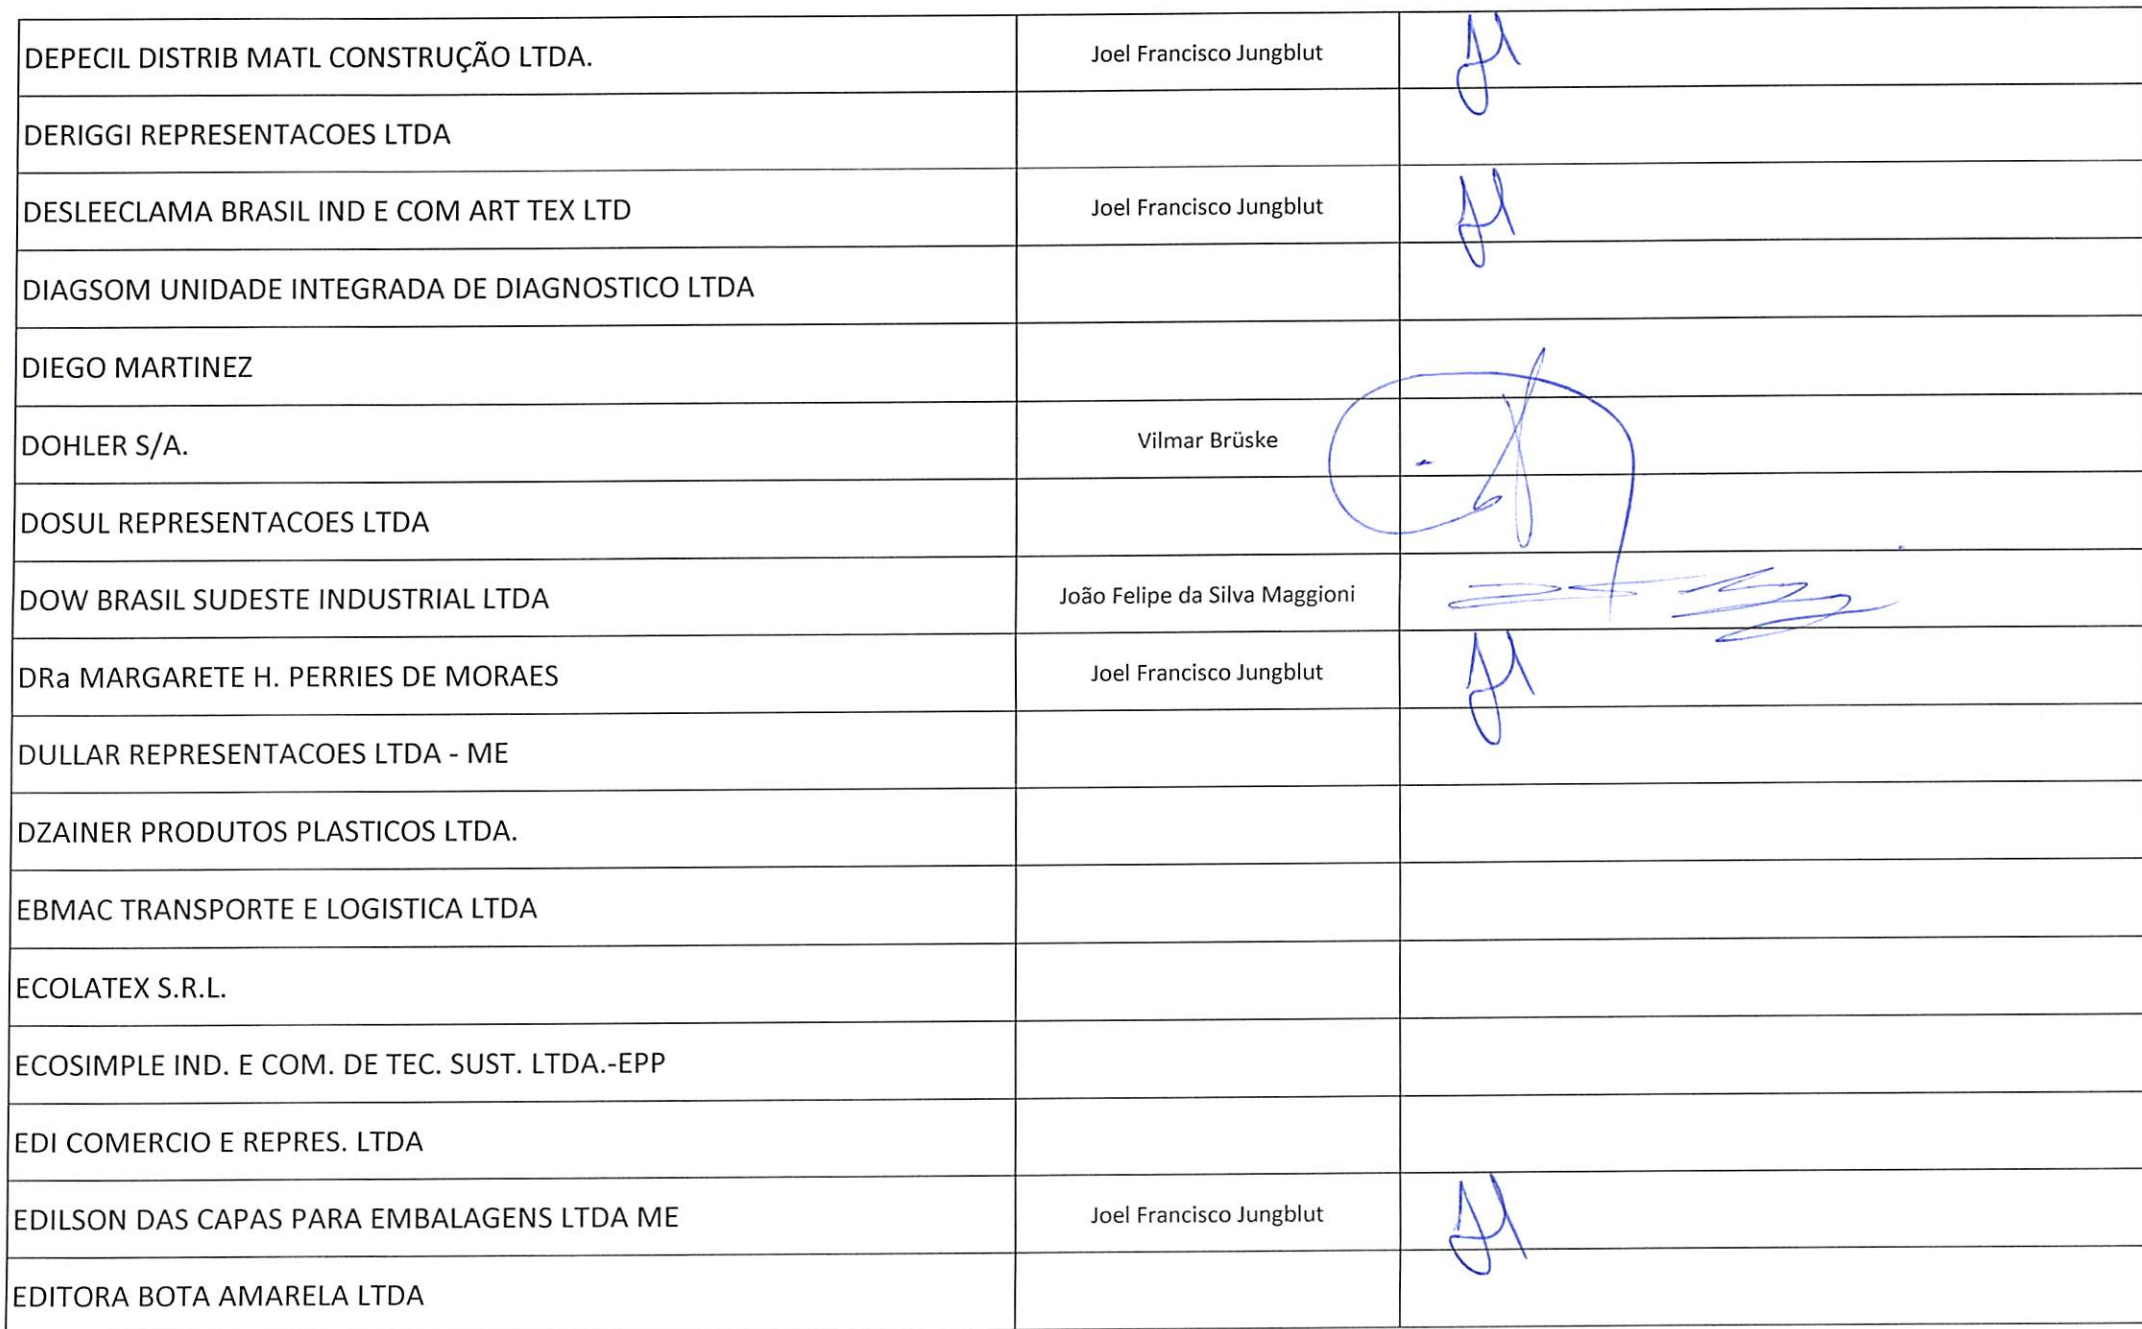 DEPECIL DISTRIB MATL CONSTRUÇÃO LTDA. Joel Francisco Jungblut
DERIGGI REPRESENTACOES LTDA
DESLEECLAMA BRASIL IND E COM ART TEX LTD Joel Francisco Jungblut
DIAGSOM UNIDADE INTEGRADA DE DIAGNOSTICO LTDA
DIEGO MARTINEZ
DOHLER S/A. Vilmar Brüske
DOSUL REPRESENTACOES LTDA
DOW BRASIL SUDESTE INDUSTRIAL LTDA João Felipe da Silva Maggioni
DRa MARGARETE H. PERRIES DE MORAES Joel Francisco Jungblut
DULLAR REPRESENTACOES LTDA - ME
DZAINER PRODUTOS PLASTICOS LTDA.
EBMAC TRANSPORTE E LOGISTICA LTDA
ECOLATEX S.R.L.
ECOSIMPLE IND. E COM. DE TEC. SUST. LTDA.-EPP
EDI COMERCIO E REPRES. LTDA
EDILSON DAS CAPAS PARA EMBALAGENS LTDA ME Joel Francisco Jungblut
EDITORA BOTA AMARELA LTDA